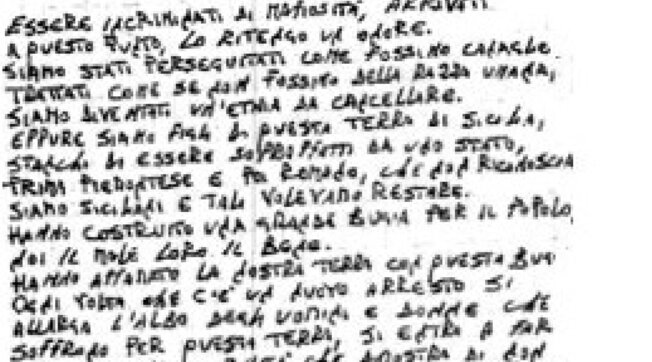 ESSERE INCRIMINATI DI MAFIOSITÀ, ARRIVATI
A QUESTO PUNTO, LO RITENGO UN ONORE.
SIAMO STATI PERSEGUITATI COME FOSSIMO CANAGLIE
TRATTATI COME SE NON FOSSIMO DELLA RAZZA UMANA,
SIAMO DIVENTATI UN'ETNIA DA CANCELLARE.
EPPURE SIAMO FIGLI DI QUESTA TERRA DI SICILIA,
STANCHI DI ESSERE SOPRAFFATTI DA UNO STATO,
PRIMA PIEMONTESE E POI ROMANO, CHE NON RICONOSCIA
SIAMO SICILIANI E TALI VOLEVAMO RESTARE.
HANNO COSTRUITO UNA GRANDE BUGIA PER IL POPOLO,
NOI IL MALE LORO IL BENE.
HANNO AFFAMATO LA NOSTRA TERRA CON QUESTA BUG
OGNI VOLTA CHE C'È UN NUOVO ARRESTO SI
ALLARGA L'ALBO DEGLI UOMINI E DONNE CHE
SOFFRONO PER QUESTA TERRA, SI ENTRA A FAR
CHE DI NON